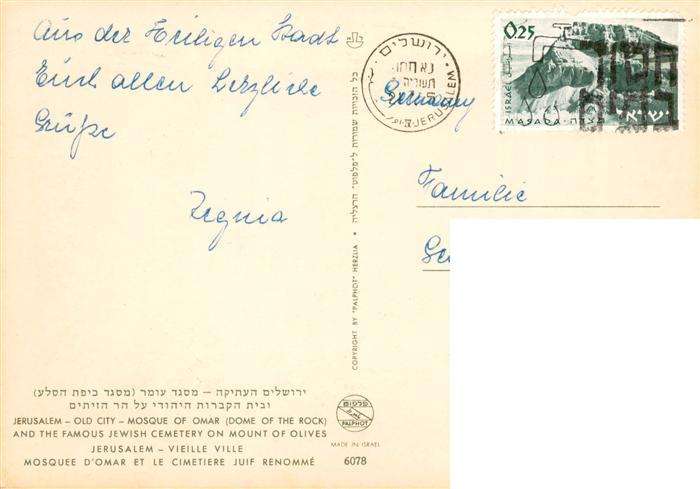 Aus der Heiligen Stadt
Euch allen herzliche
Grüße
Regina
Germany
Familie
0.25
ISRAEL
MASADA · מצדה
ישראל
ירושלים
JERUSALEM
חסוך
במים
כל הזכויות שמורות ל"פלפוט" הרצליה • COPYRIGHT BY "PALPHOT" HERZLIA
ירושלים העתיקה – מסגד עומר (מסגד כיפת הסלע)
ובית הקברות היהודי על הר הזיתים
JERUSALEM – OLD CITY – MOSQUE OF OMAR (DOME OF THE ROCK)
AND THE FAMOUS JEWISH CEMETERY ON MOUNT OF OLIVES
JERUSALEM – VIEILLE VILLE
MOSQUEE D'OMAR ET LE CIMETIERE JUIF RENOMMÉ
פלפוט
PALPHOT
MADE IN ISRAEL
6078